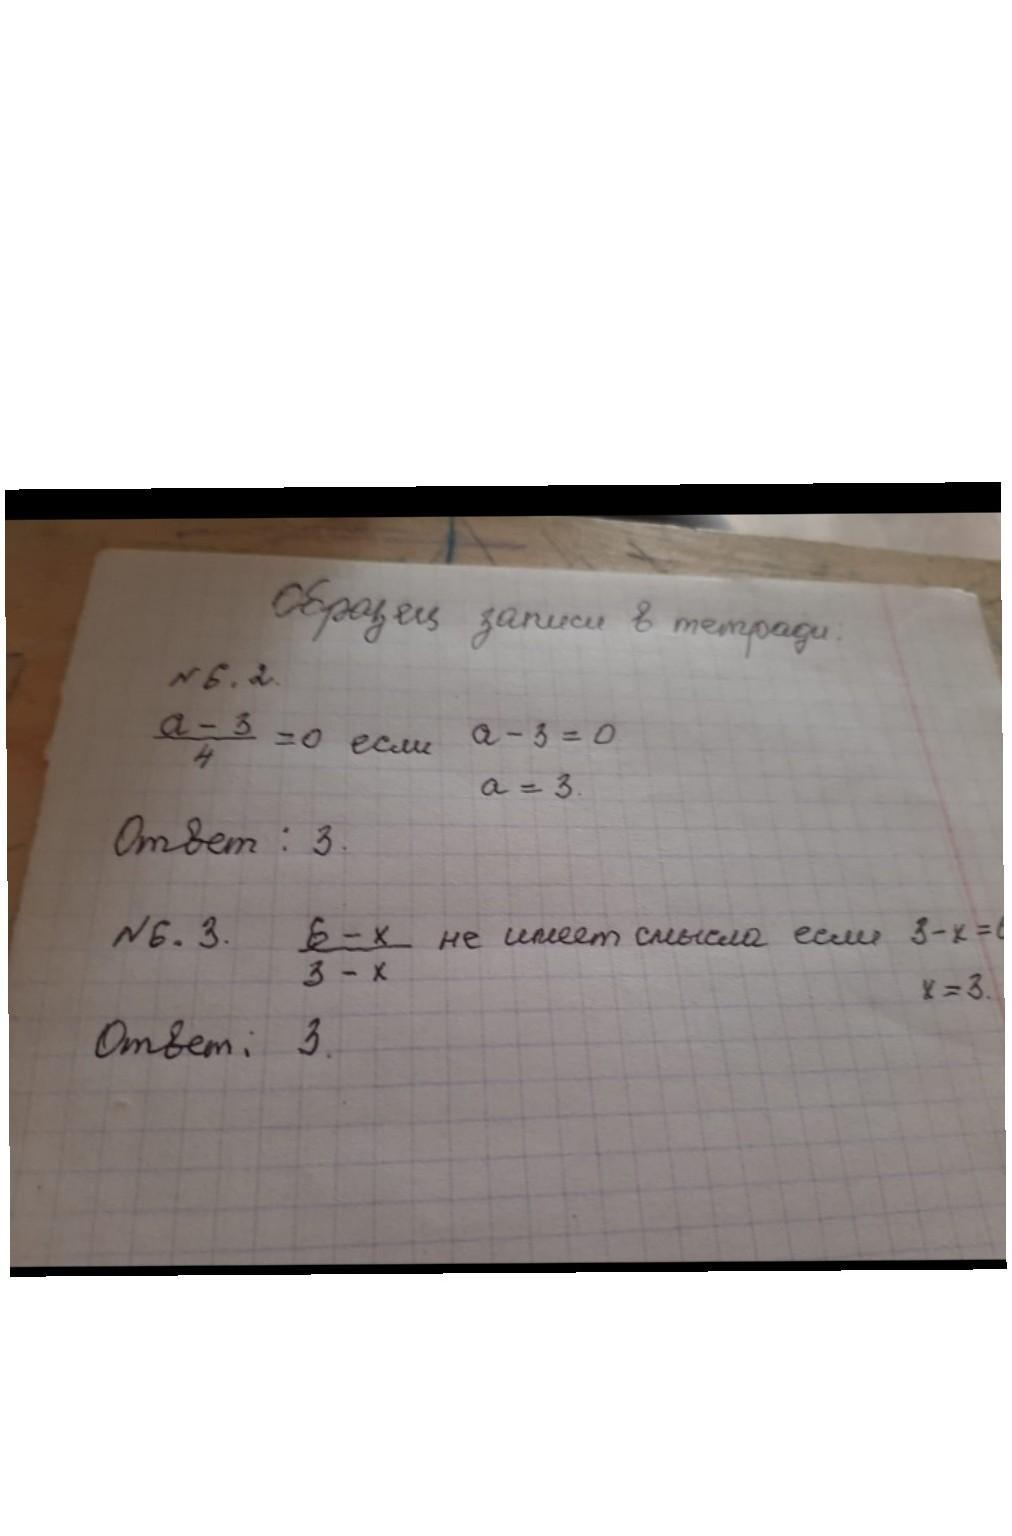 Образец записи в тетради:
№6.2.
a - 3 / 4 = 0 если a - 3 = 0
a = 3.
Ответ: 3.
№6.3. 6 - x / 3 - x не имеет смысла если 3 - x = 0
x = 3.
Ответ: 3.